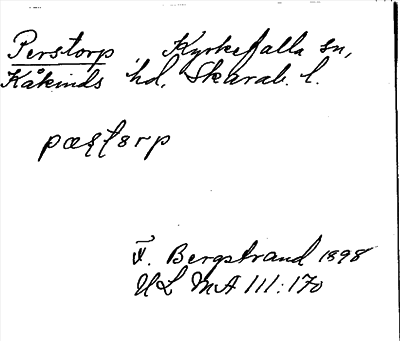 Perstorp, Kyrkefalla sn,
Kåkinds hd, Skarab. l.
pæʂtorp
F. Bergstrand 1898
ULMA 111:170